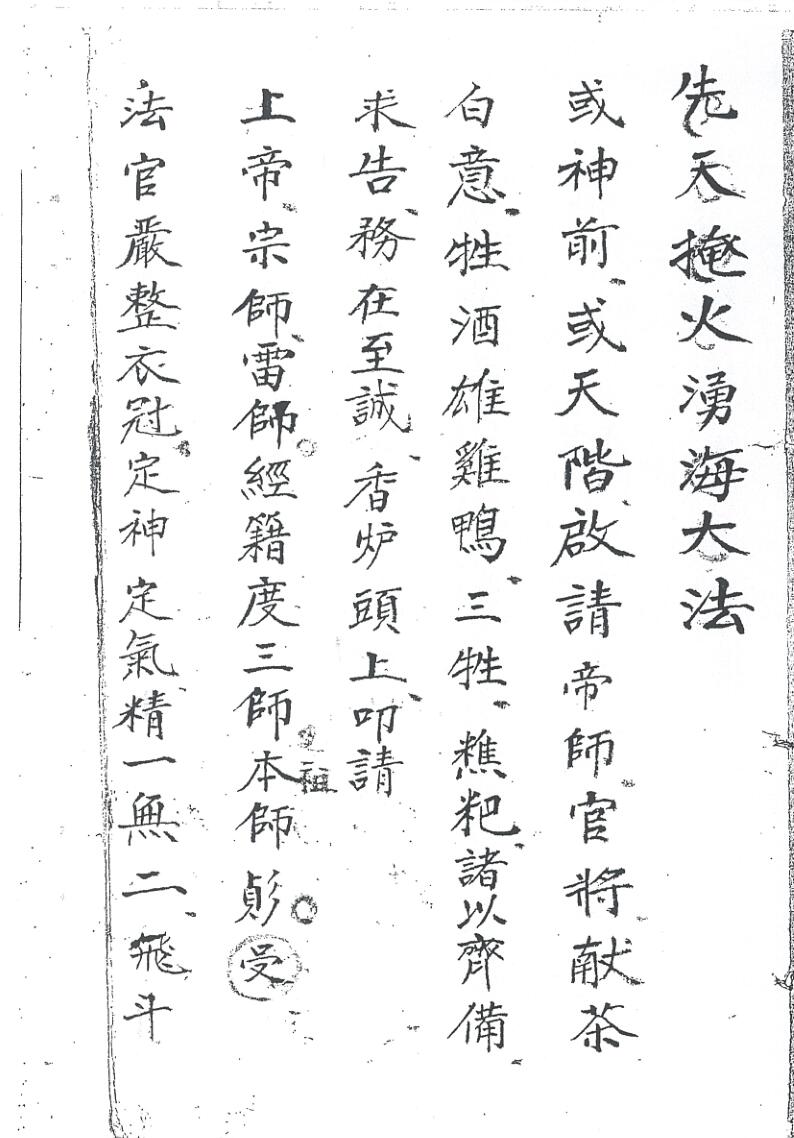 先天掩火湧海大法
或神前、或天階、啟請帝師官將献茶
白意、牲酒雄雞鴨、三牲、樵粑、諸以齊備、
求告、務在至誠、香炉頭上、叩請
上帝、宗師、雷師。經籍度三師本師。受
祖
法官嚴整衣冠、定神定氣、精一無二、飛斗